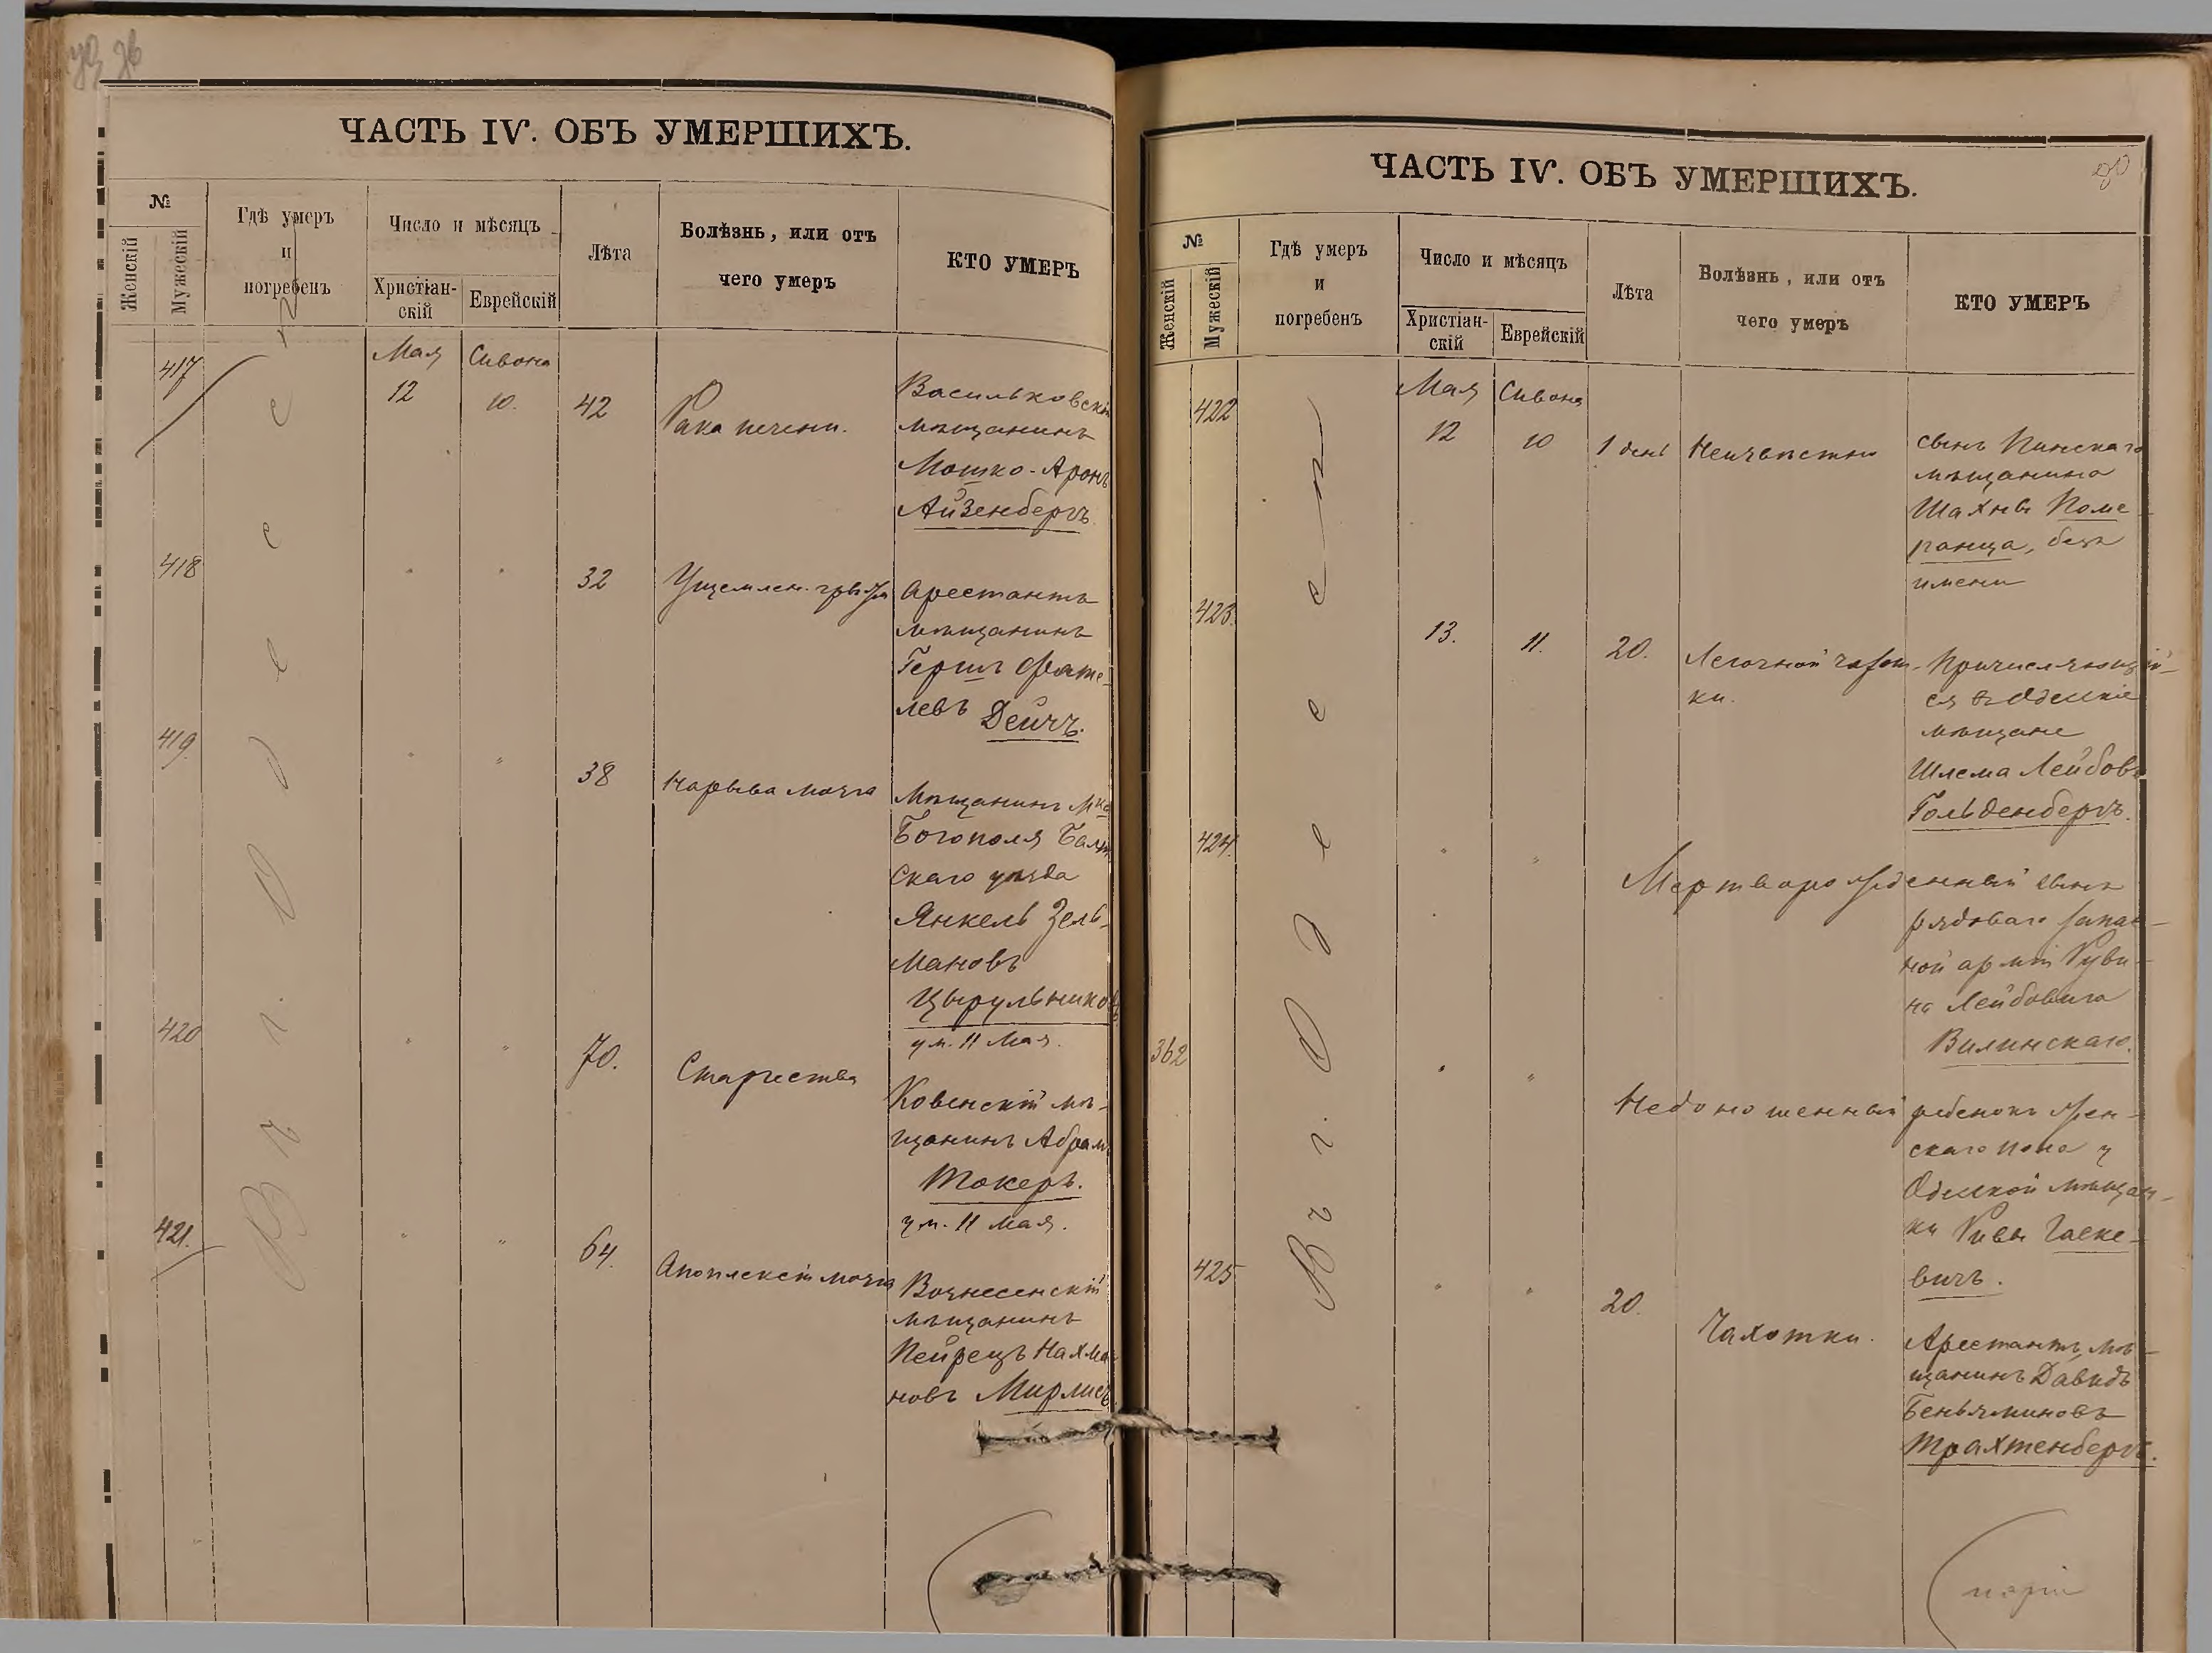 ЧАСТЬ IV. ОБЪ УМЕРШИХЪ.
№
Женскій
Мужескій
Гдѣ умеръ
и
погребенъ
Число и мѣсяцъ
Христіан-
скій
Еврейскій
Лѣта
Болѣзнь, или отъ
чего умеръ
КТО УМЕРЪ
Въ г. Одессѣ
Мая
Сивона
417
12
10.
42
Рака печени.
Васильковскій
мѣщанинъ
Мошко-Аронъ
Айзенбергъ
418
"
"
32
Ущемлен. грыжи
Арестантъ
мѣщанинъ
Гершъ Фате-
левъ Дейчъ.
419
"
"
38
Нарыва мозга
Мѣщанинъ мка
Богополя Балт
скаго уѣзда
Янкель Зель-
мановъ
Цырульниковъ
ум. 11 Мая.
420
"
"
70.
Старчества
Ковенскій мѣ-
щанинъ Абрамъ
Токеръ.
ум. 11 Мая.
421.
"
"
64.
Апоплексіи мозга
Вознесенскій
мѣщанинъ
Пейрецъ Нахма-
новъ Мирлисъ
ЧАСТЬ IV. ОБЪ УМЕРШИХЪ.
№
Женскій
Мужескій
Гдѣ умеръ
и
погребенъ
Число и мѣсяцъ
Христіан-
скій
Еврейскій
Лѣта
Болѣзнь, или отъ
чего умеръ
КТО УМЕРЪ
Въ г. Одессѣ
Мая
Сивона
422
12
10
1 день
Неизвѣстно
сынъ Пинскаго
мѣщанина
Шахны Поме
ранца, безъ
имени
423.
13.
11.
20.
Легочной чахот-
ки.
Причисляющій-
ся въ Одесскіе
мѣщане
Шлема Лейбовъ
Гольденбергъ.
424.
"
"
Мертворожденный сынъ
рядоваго запас-
ной арміи Руви-
на Лейбовича
Вилинскаго.
362
"
"
Недоношенный ребенокъ жен-
скаго пола у
Одесской мѣщан-
ки Ривы Гаске-
вичъ.
425
"
"
20.
Чахотки.
Арестантъ, мѣ-
щанинъ Давидъ
Беньяминовъ
Трахтенбергъ.